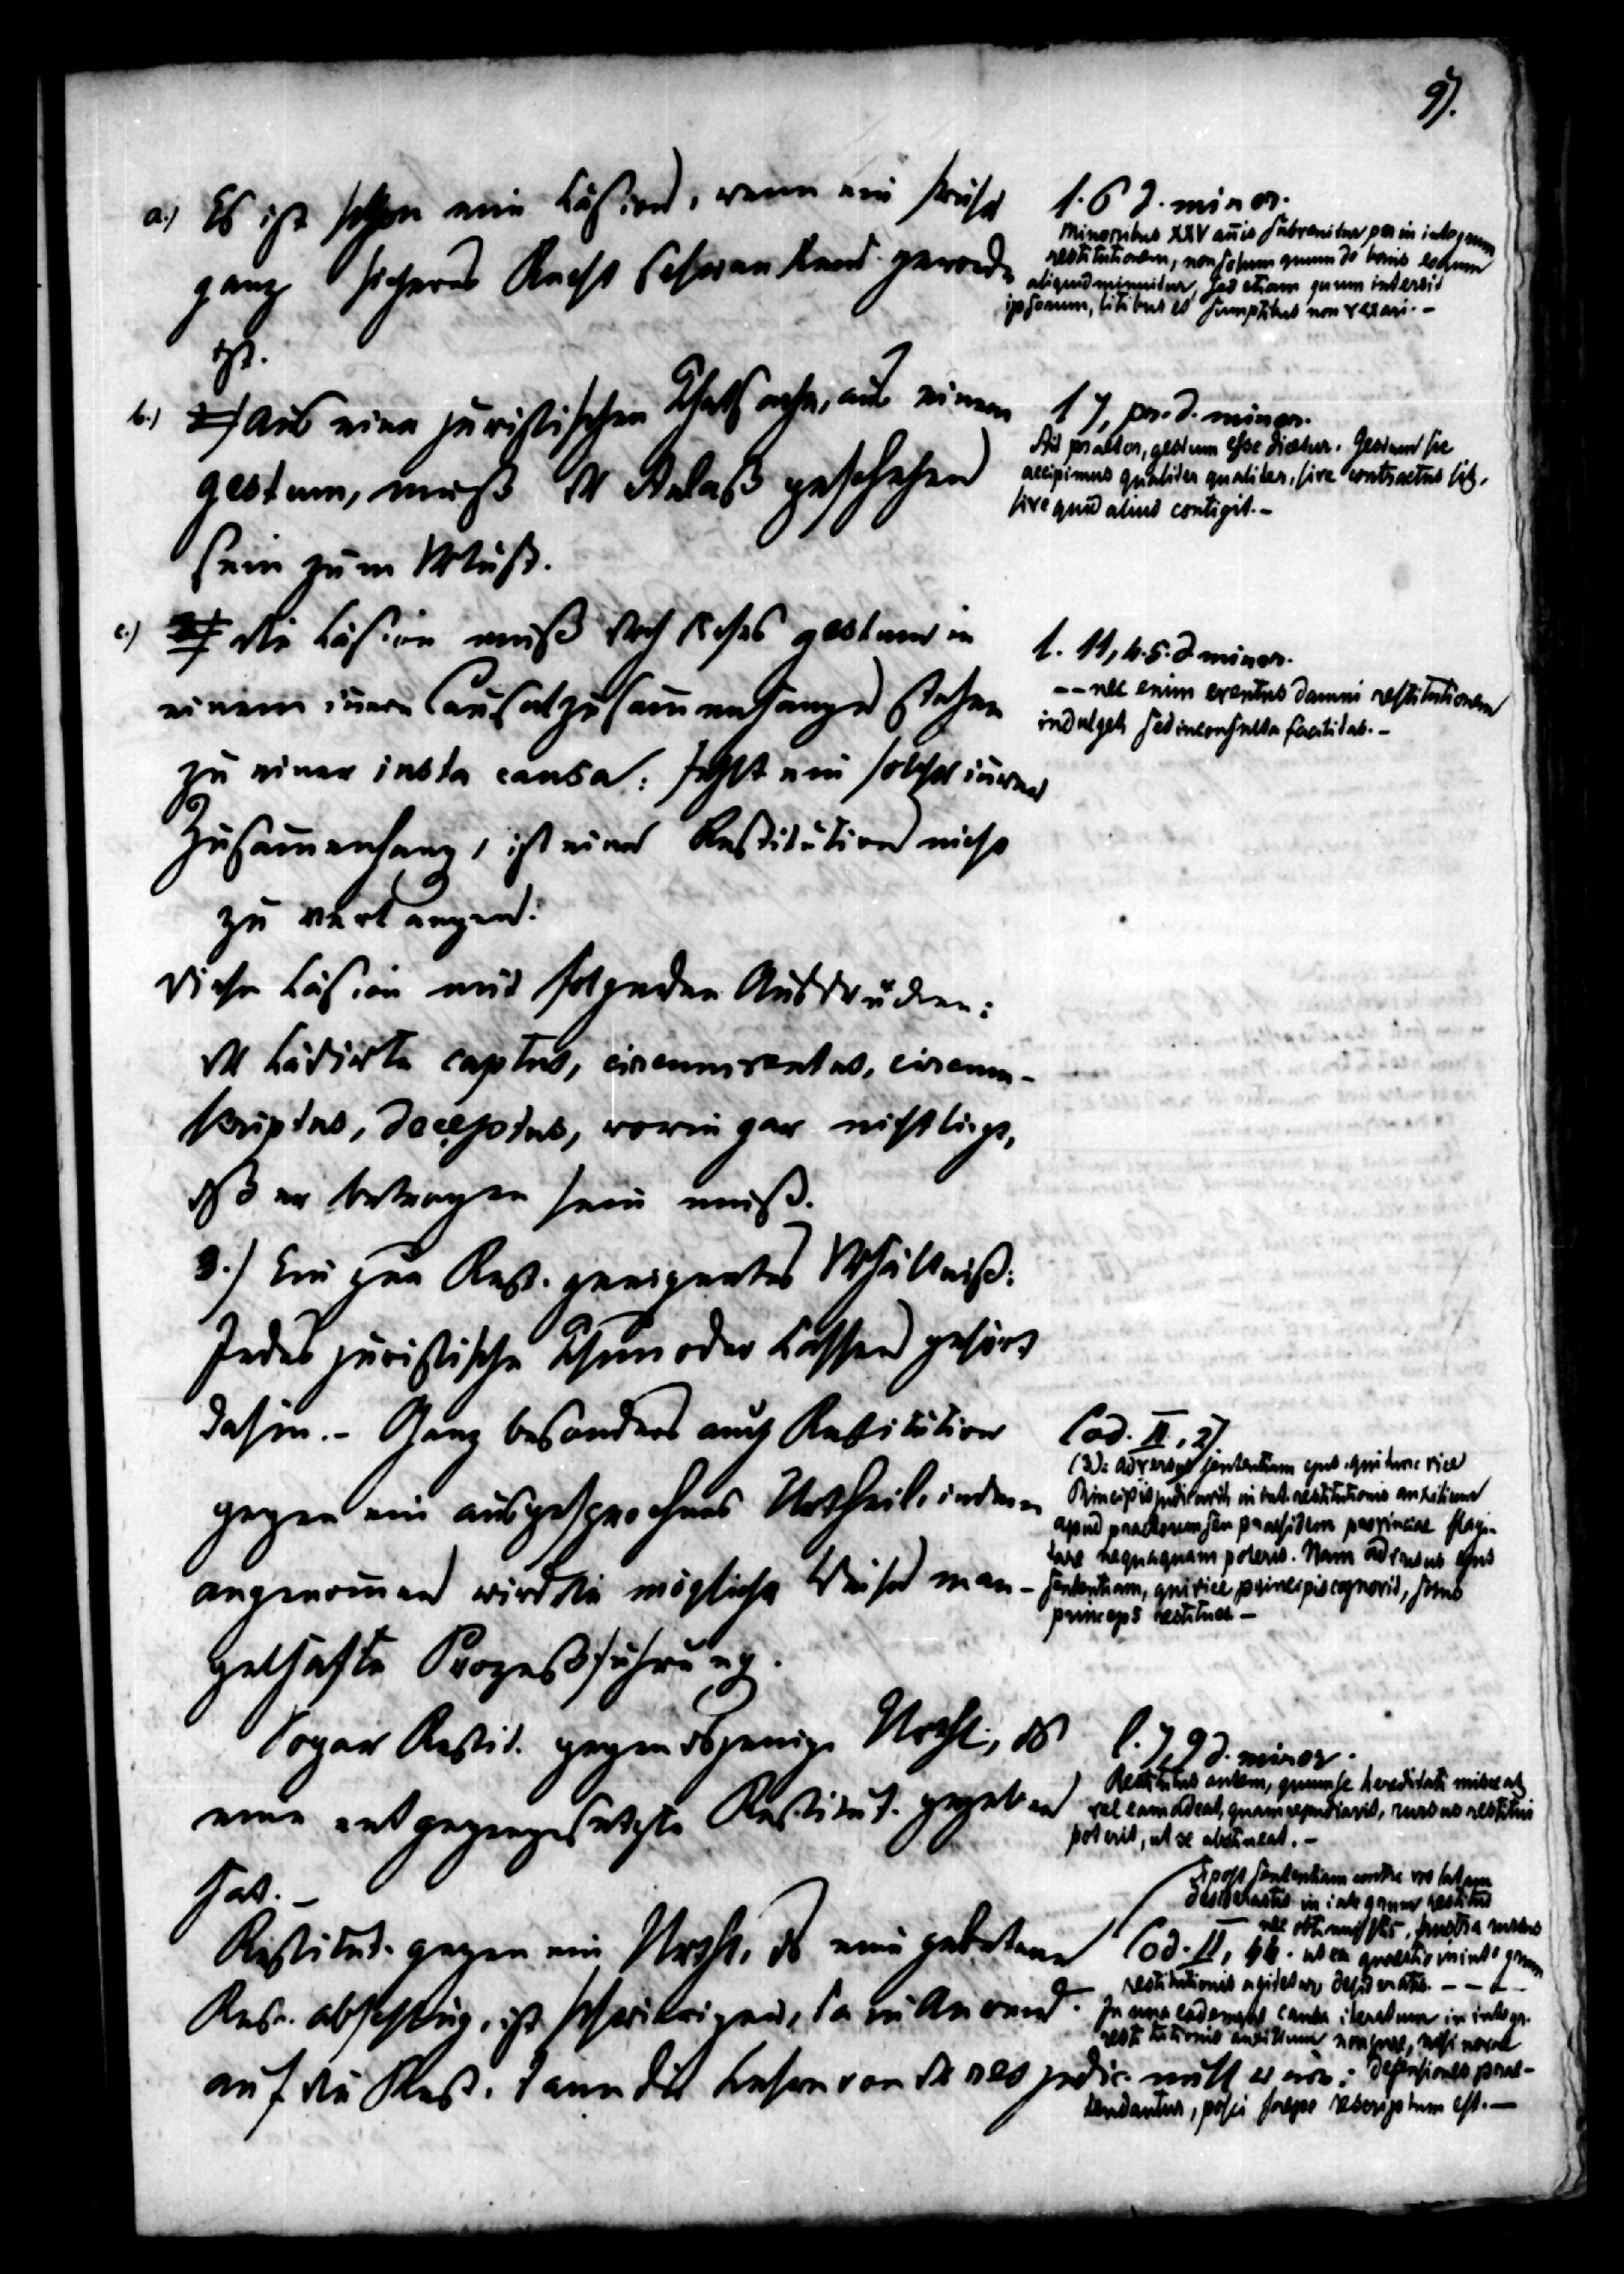 97.
a.) Es ist schon eine Läsion, wenn ein früher
ganz sicheres Recht schwankend geworden
ist.
b.) Aus einer juristischen Thatsache, aus einem
gestum, muß der Anlaß geschehen
sein zum Verlust.
c.) Die Läsion muß durch dieses gestum in
einem innern Causalzusammenhange stehen
zu einer iusta causa: fehlt ein solcher innerer
Zusammenhang, ist eine Restitution nicht
zu verlangen.
Diese Läsion mit folgenden Ausdrücken:
der Lädirte captus, circumventus, circum-
scriptus, deceptus, worin gar nicht liegt,
daß er betrogen sein muß.
3.) Ein zur Rest. geeignetes Verhältniß:
Jedes juristische Thun oder Lassen gehört
dahin.- Ganz besonders auch Restitution
gegen ein ausgesprochenes Urtheil, indem
angenommen wird die mögliche Weise man-
gelhafte Prozeßführung.
Sogar Restit. gegen dasjenige Urthl., das
eine entgegengesetzte Restitut. gegeben
hat.-
Restitut. gegen ein Urthl., das eine gebetene
Rest. abschlug, ist schwieriger, da in Anwend.
auf die Rest. dann die Lehre von der res judic.
l. 6 d. minor.
Minoribus XXV annis subvenitur per in integrum
restitutionem, non solum quum de bonis eorum
aliquid minuitur, sed etiam quum intersit
ipsorum, litibus et sumptibus non vexari.-
l 7, pr. d. minor.
Ait praetor, gestum esse dicetur. Gestum sic
accipimus qualiter qualiter, sive contractus sit,
sive quid aliud contigit.-
l. 11, 4.5. d minor.
-- nec enim eventus damni restitutionem
indulget, sed inconsulta facilitas.-
Cod. II, 27
(3): adversus sententiam ejus, qui tunc vice
Principis judicavit, in int. restitutionis auxilium
apud praetorem seu praesidem provinciae flagi-
tare nequaquam poteris. Nam adversus ejus
sententiam, qui vice principis cognovit, solus
princeps restituet-
l. 7, 9 d. minor.
Restitutus autem, quum se hereditati misceat,
vel eam adeat, quam repudiavit, rursus restitui
poterit, ut se abstineat.-
Si post sententiam contra vos latam
desiderastis in integrum restitui
nec obtinuistis, frustra rursus
Cod. II, 44. ut ea quaestio in integrum
restitutionis agitetur, desideratis. ---
In una eademque causa iteratum in integr.
restitutionis auxilium non jure, nisi novae
defensiones prae-
tendantur, posci saepe rescriptum est.-